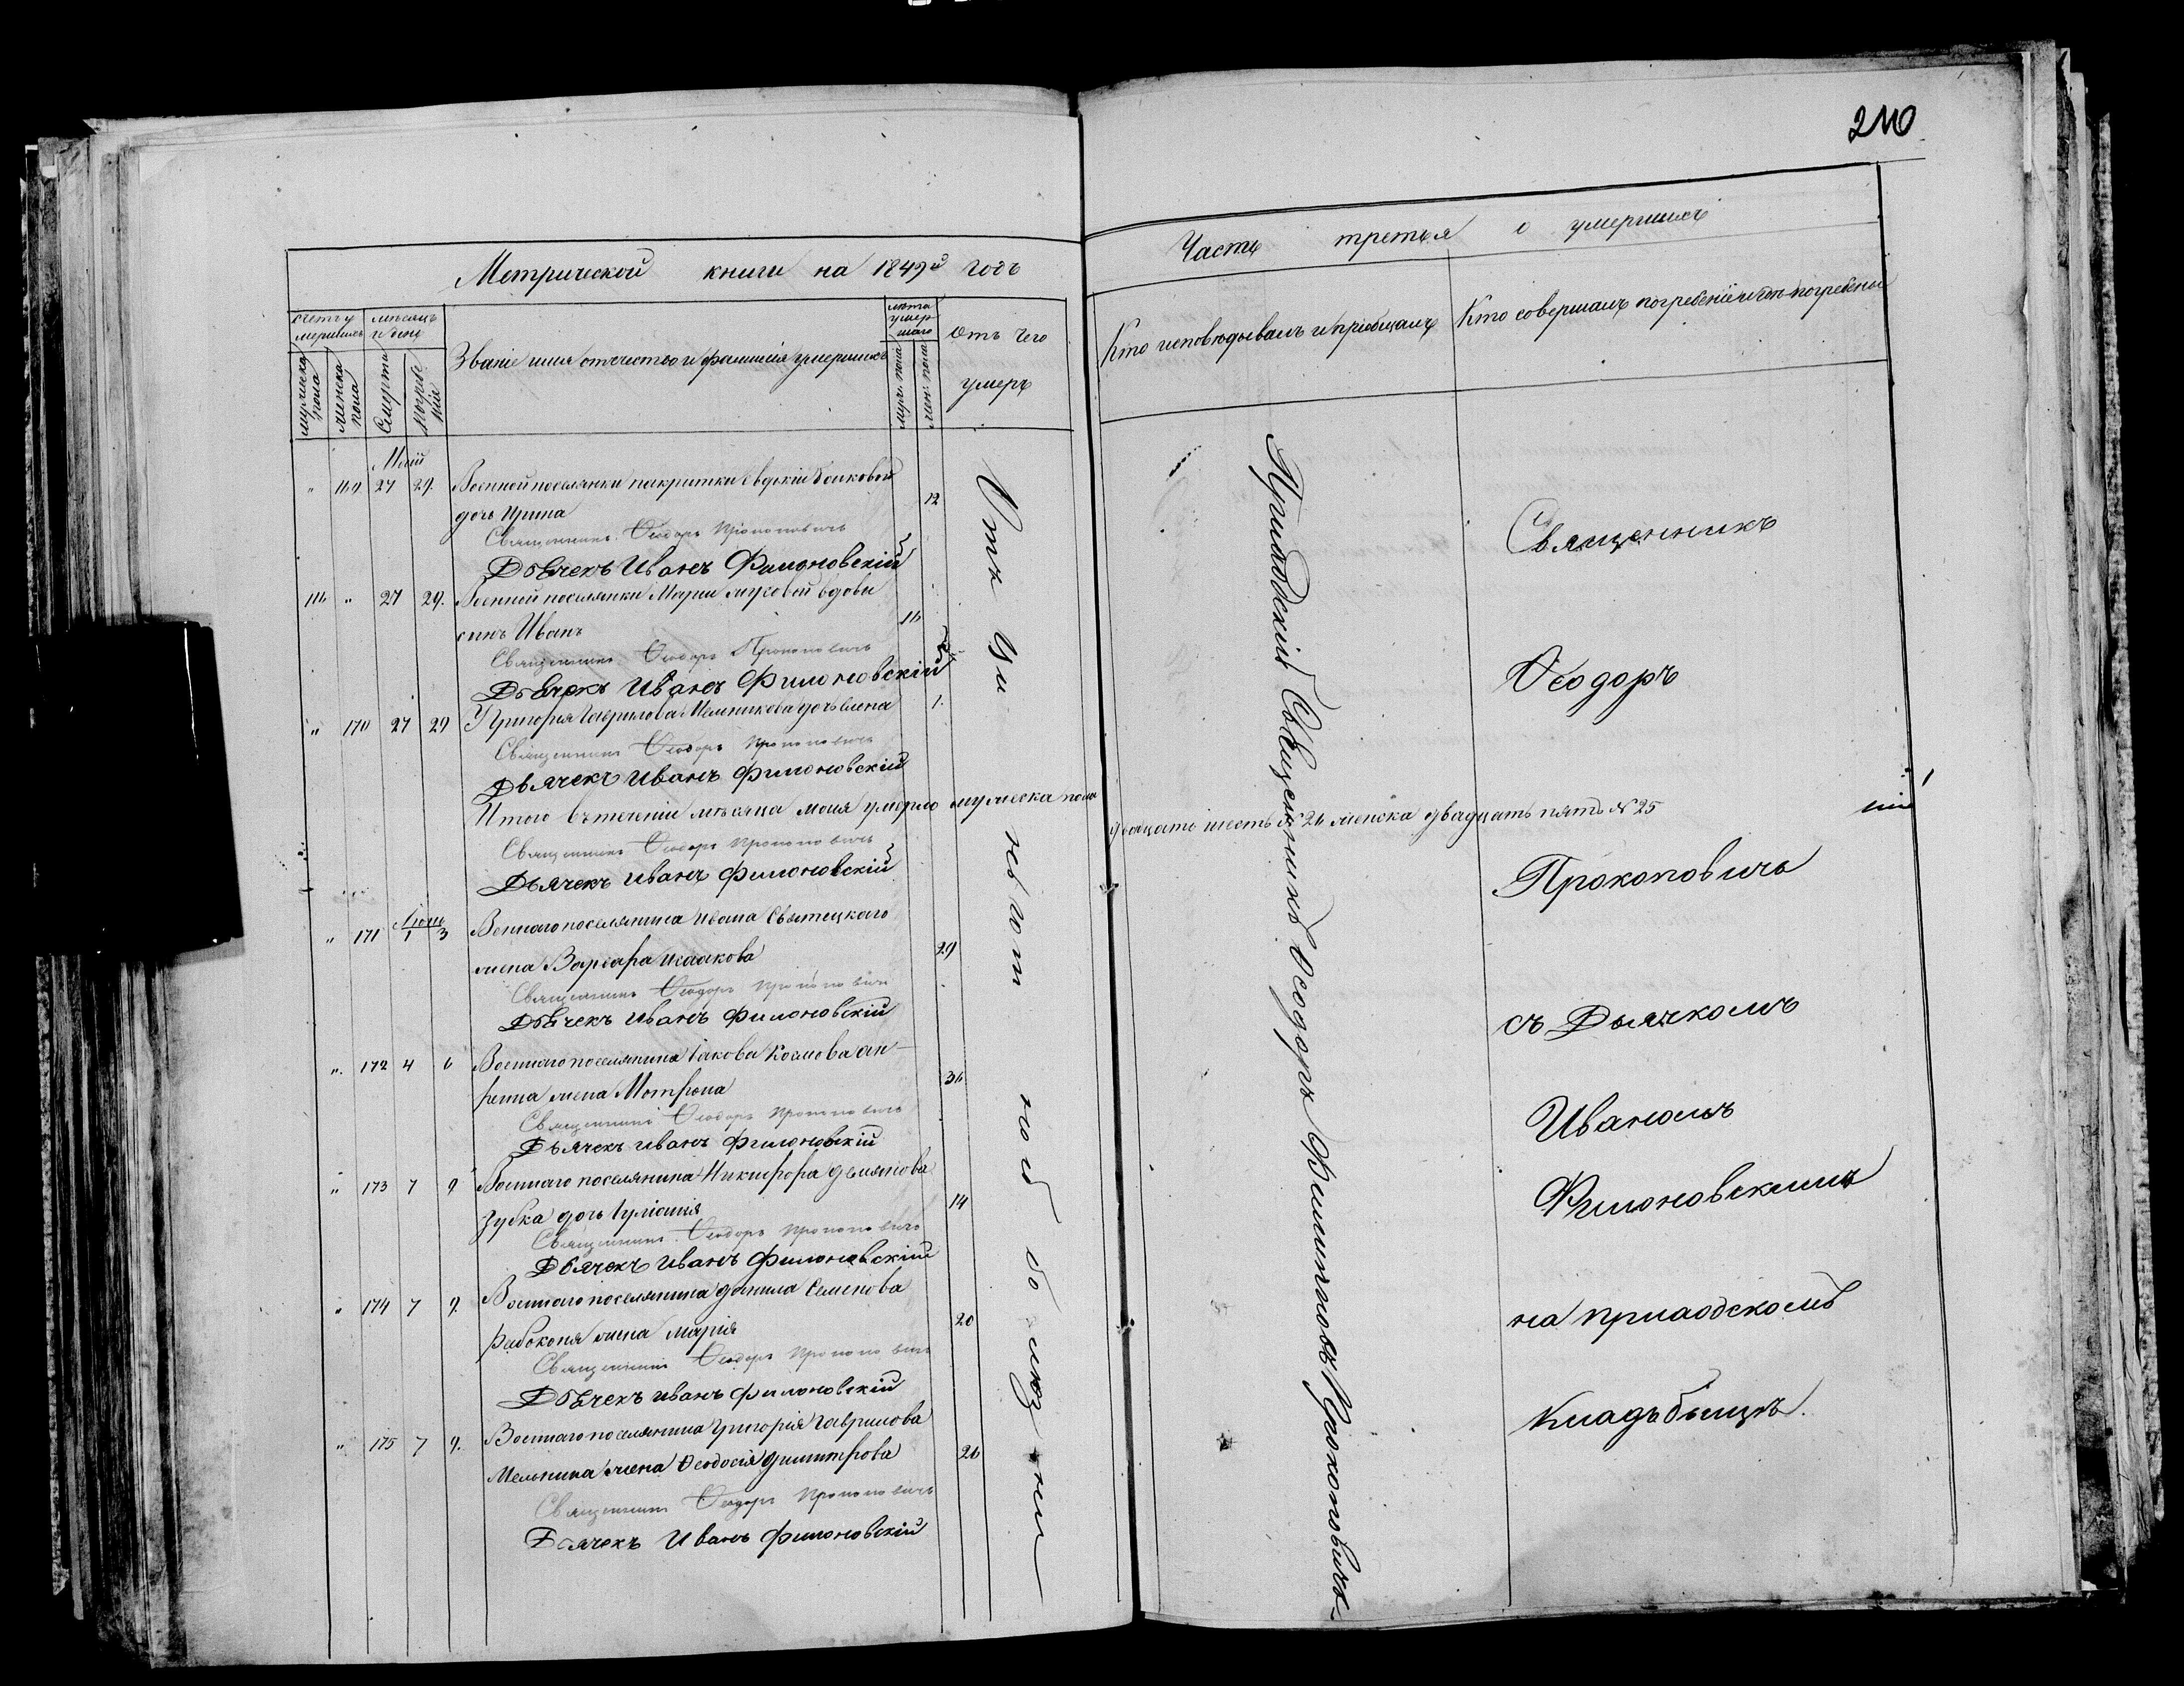 240
Метрической книги на 1849й годъ
Часть третья о умершихъ
счетъ умершихъ
мѣсяцъ и день
Званіе имя отчество и фамилія умершихъ
лѣта умершаго
отъ чего умеръ
мужеска пола
женска пола
смерти
погребенія
муж. пола
жен. пола
Кто исповѣдывалъ и пріобщалъ
Кто совершалъ погребеніе и гдѣ погребены
Маій
" 169 27 29. Военной поселянки покритки Евдокіи
дочь Ирина 12
Священникъ Ѳеодоръ Прокоповичъ
Дьячекъ Иванъ Филоновскій
" 27 29. Военной поселянки Маріи вдовы
сынъ Иванъ
Священникъ Ѳеодоръ Прокоповичъ
Дьячекъ Иванъ Филоновскій
" 170 27 29 У Григорія Гаврилова Мельникова дочь Елена 1.
Священникъ Ѳеодоръ Прокоповичъ
Дьячекъ Иванъ Филоновскій
Итого въ теченіи мѣсяца маія умерло мужеска пола двадцать шесть № 26 женска двадцать пять № 25
Священникъ Ѳеодоръ Прокоповичъ
Дьячекъ Иванъ Филоновскій
Іюнь
" 171 1 3 Военнаго поселянина Ивана Святецкаго
жена Варвара Исаакова 29
Священникъ Ѳеодоръ Прокоповичъ
Дьячекъ Иванъ Филоновскій
" 172 4 6 Военнаго поселянина Іакова Козмова
жена Мотрона 36
Священникъ Ѳеодоръ Прокоповичъ
Дьячекъ Иванъ Филоновскій
" 173 7 9 Военнаго поселянина Никифора Демянова
Зубка дочь Іуліанія 14
Священникъ Ѳеодоръ Прокоповичъ
Дьячекъ Иванъ Филоновскій
" 174 7 9. Военнаго поселянина Данила Семенова
Рабоконя жена Марія 20
Священникъ Ѳеодоръ Прокоповичъ
Дьячекъ Иванъ Филоновскій
" 175 7 9. Военнаго поселянина Григорія Гаврилова
Мельника жена Ѳеодосія Димитрова 26
Священникъ Ѳеодоръ Прокоповичъ
Дьячекъ Иванъ Филоновскій
Отъ
болѣзни
Приходскій Священникъ Ѳеодоръ Филипповъ Прокоповичъ.
Священникъ
Ѳеодоръ
Прокоповичъ
съ Дьячкомъ
Иваномъ
Филоновскимъ
на приходскомъ
кладьбищѣ.